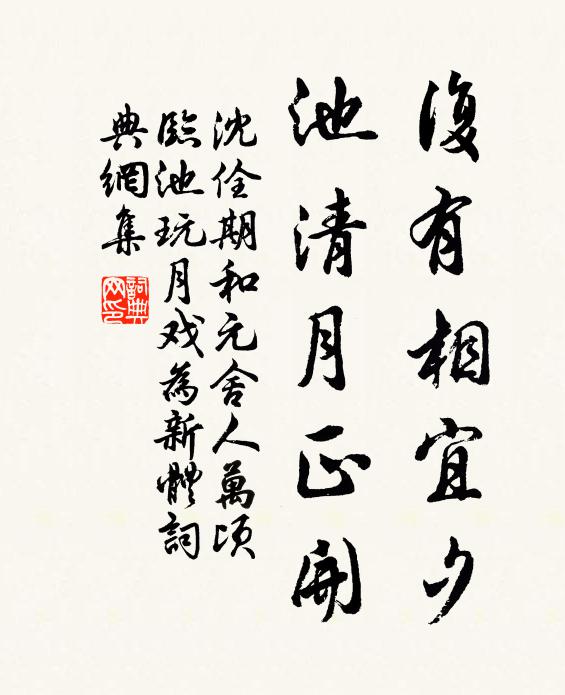 復有相宜夕
池清月正開
沈佺期和元舍人萬頃
臨池玩月戏為新體詞
典網集
詞典
网印